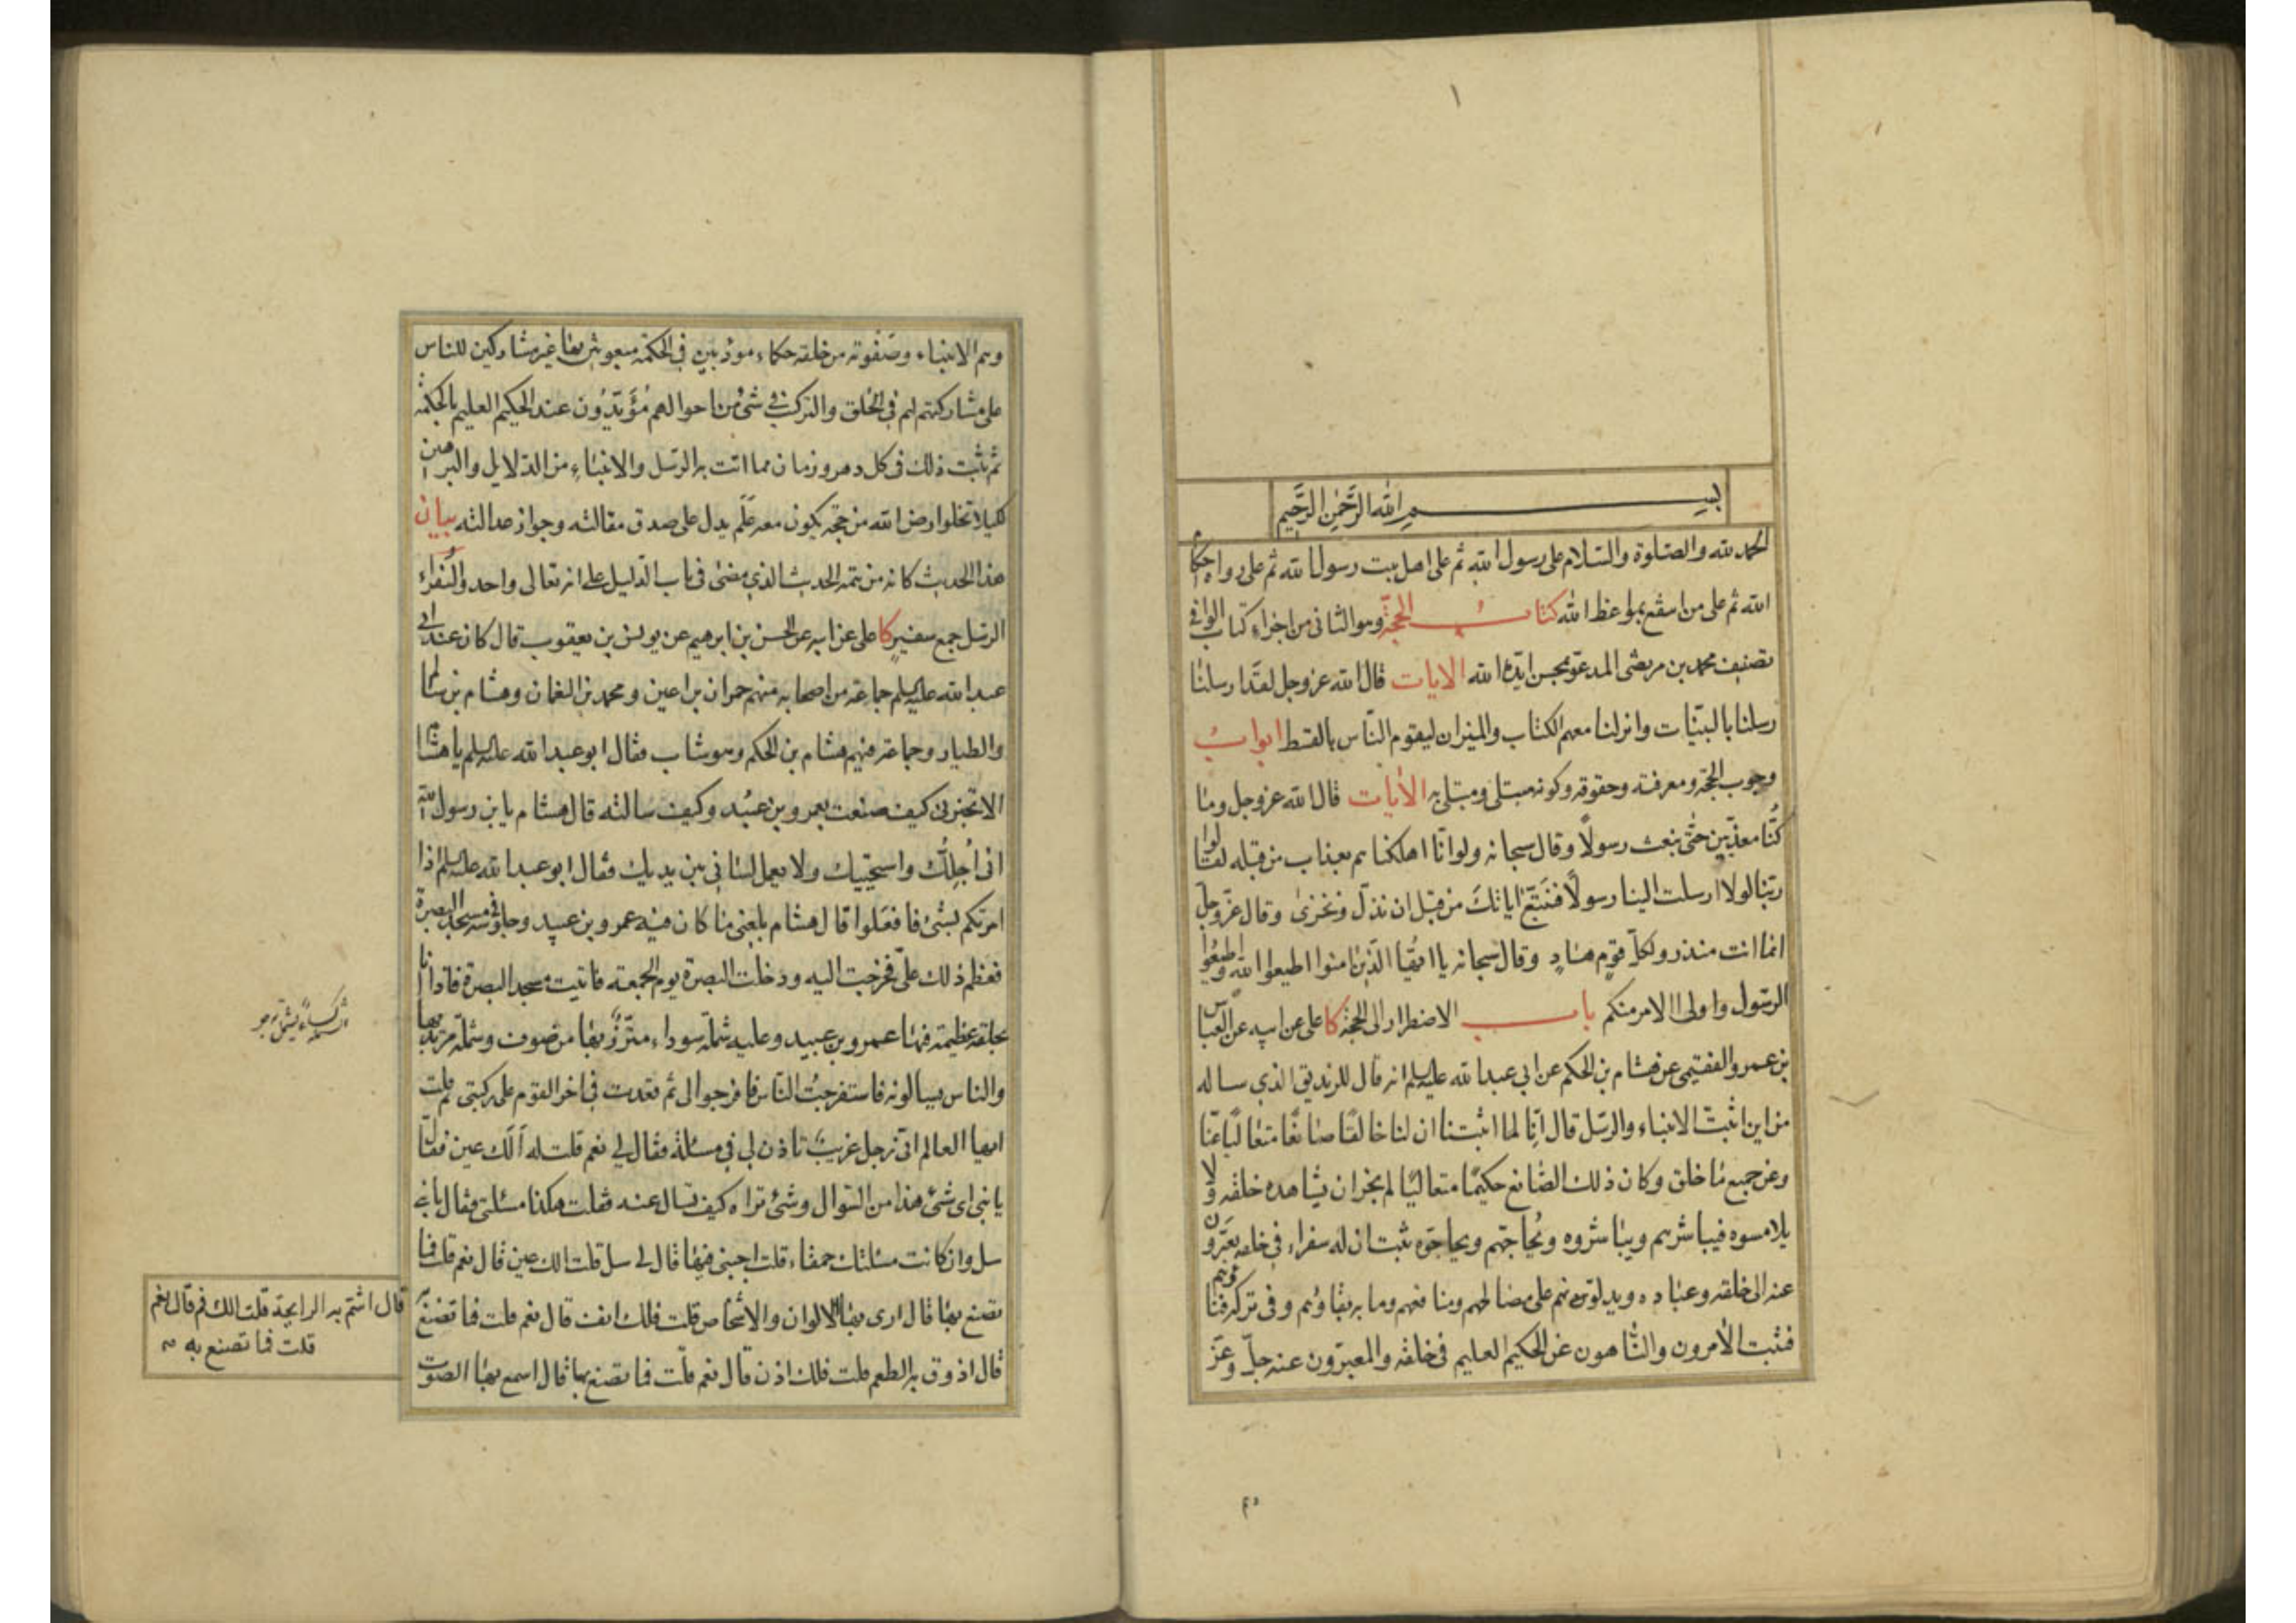 ١
بسم الله الرَّحْمٰنِ الرَّحِيمِ
الحمد لله والصلوة والسلام على رسول الله ثم على اهل بيت رسول الله ثم على رواة احكام
الله ثم على من اسفع بمواعظ الله كتاب الحجة وهو الثاني من اجزاء كتاب الوافي
تصنيف محمد بن مرتضى المدعو بمحسن ايده الله الايات قال الله عز وجل لقد ارسلنا
رسلنا بالبينات وانزلنا معهم الكتاب والميزان ليقوم الناس بالقسط ابواب
وجوب الحجة ومعرفته وحقوقه وكونه مبتلى ومبتلى به الايات قال الله عز وجل وما
كُنّا معذّبين حتى نبعث رسولاً وقال سبحانه ولو انّا اهلكناهم بعذاب من قبله لقالوا
ربنا لولا ارسلت الينا رسولاً فنتّبع اياتك من قبل ان نذلّ ونخزى وقال عزّ وجلّ
انما انت منذر ولكلّ قوم هاد وقال سبحانه يا ايّها الّذين امنوا اطيعوا الله واطيعُوا
الرسول واولى الامر منكم باب الاضطرار الى الحجة كا على عن ابيه عن العباس
بن عمرو الفقيمى عن هشام بن الحكم عن ابي عبد الله عليه السلم انه قال للزنديق الذي ساله
من اين اثبتّ الانبياء والرسل قال انّا لما اثبتنا ان لنا خالقًا صانعًا متعاليًا عنّا
وعن جميع ما خلق وكان ذلك الصانع حكيمًا متعاليًا لم يجز ان يشاهده خلقه ولا
يلامسوه فيباشرهم ويباشروه ويُحاجّهم ويحاجّوه ثبت ان له سفراء في خلقه يعبّرون
عنه الى خلقه وعباده ويدلونهم على مصالحهم ومنافعهم وما به بقاؤهم وفى تركه فناؤهم
فثبت الآمرون والناهون عن الحكيم العليم في خلقه والمعبرون عنه جلّ وعزّ
وهم الانبياء وصفوته من خلقه حكماء مؤدبين في الحكمة مبعوثين بها غير مشاركين للناس
على مشاركتهم لهم في الخلق والتركيب في شئ من احوالهم مُؤَيّدُون عند الحكيم العليم بالحكمة
ثم ثبت ذلك فى كل دهر وزمان مما اتت به الرسل والانبياء من الدلايل والبراهين
لكيلا تخلوا ارض الله من حجّه يكون معه عَلَم يدل على صدق مقالته وجواز عدالته بيان
هذا الحديث كانه من تتمه الحديث الذي مضى فى باب الدليل على انه تعالى واحد والسُفراء
الرسل جمع سفير كا على عن ابيه عن الحسن بن ابرهيم عن يونس بن يعقوب قال كان عند ابى
عبد الله عليه السلم جماعة من اصحابه منهم حمران بن اعين ومحمد بن النعمان وهشام بن سالم
والطيار وجماعة فيهم هشام بن الحكم وهو شاب فقال ابو عبد الله عليه السلم يا هشام
الا تخبرنى كيف صنعت بعمرو بن عُبيد وكيف سالته قال هشام يا بن رسول الله
انى اُجلّك واستحييك ولا يعمل لسانى بين يديك فقال ابو عبد الله عليه السلم اذا
امرتكم بشئ فافعلوا قال هشام بلغنى ما كان فيه عمرو بن عبيد وجلوسه فى مسجد البصرة
فعظم ذلك علىّ فخرجت اليه ودخلت البصرة يوم الجمعة فاتيت مسجد البصرة فاذا انا
بحلقة عظيمة فيها عمرو بن عبيد وعليه شملة سوداء متّزر بها من صوف وشملة مرتد بها
والناس يسالونه فاستفرجتُ الناس فافرجوا لى ثم قعدت فى اخر القوم على ركبتى ثم قلت
ايها العالم انى رجل غريب تاذن لى فى مسئلة فقال لى نعم قلت له ألك عين فقال
يا بنى اى شئ هذا من السوال وشئ تراه كيف تسال عنه فقلت هكذا مسئلتى فقال يا بنى
سل وان كانت مسئلتك حمقاء قلت اجبنى فيها قال لى سل قلت الك عين قال نعم قلت فما
تصنع بها قال ارى بها الالوان والاشخاص قلت فلك انف قال نعم قلت فما تصنع به
قال اذوق به الطعم قلت فلك اذن قال نعم قلت فما تصنع بها قال اسمع بها الصوت
قال اشتمّ به الرايحة قلت الك فم قال نعم
قلت فما تصنع به